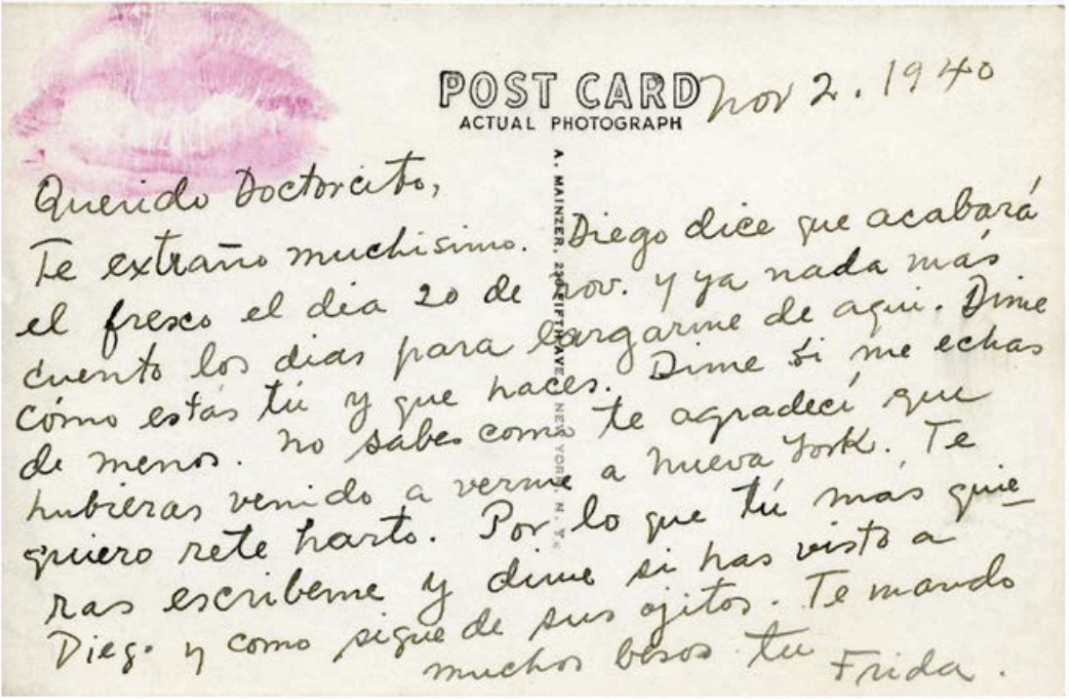 POST CARD
ACTUAL PHOTOGRAPH
Nov 2. 1940
A. MAINZER, FIFTH AVE NEW YORK, N.Y.
Querido Doctorcito,
Te extraño muchisimo. Diego dice que acabará
el fresco el dia 20 de nov. y ya nada más
cuento los dias para largarme de aqui. Dime
cómo estás tú y que haces. Dime si me echas
de menos. No sabes como te agradecí que
hubieras venido a verme a Nueva York. Te
quiero rete harto. Por lo que tú más quie
ras escribeme y dime si has visto a
Diego y como sigue de sus ojitos. Te mando
muchos besos tu Frida.